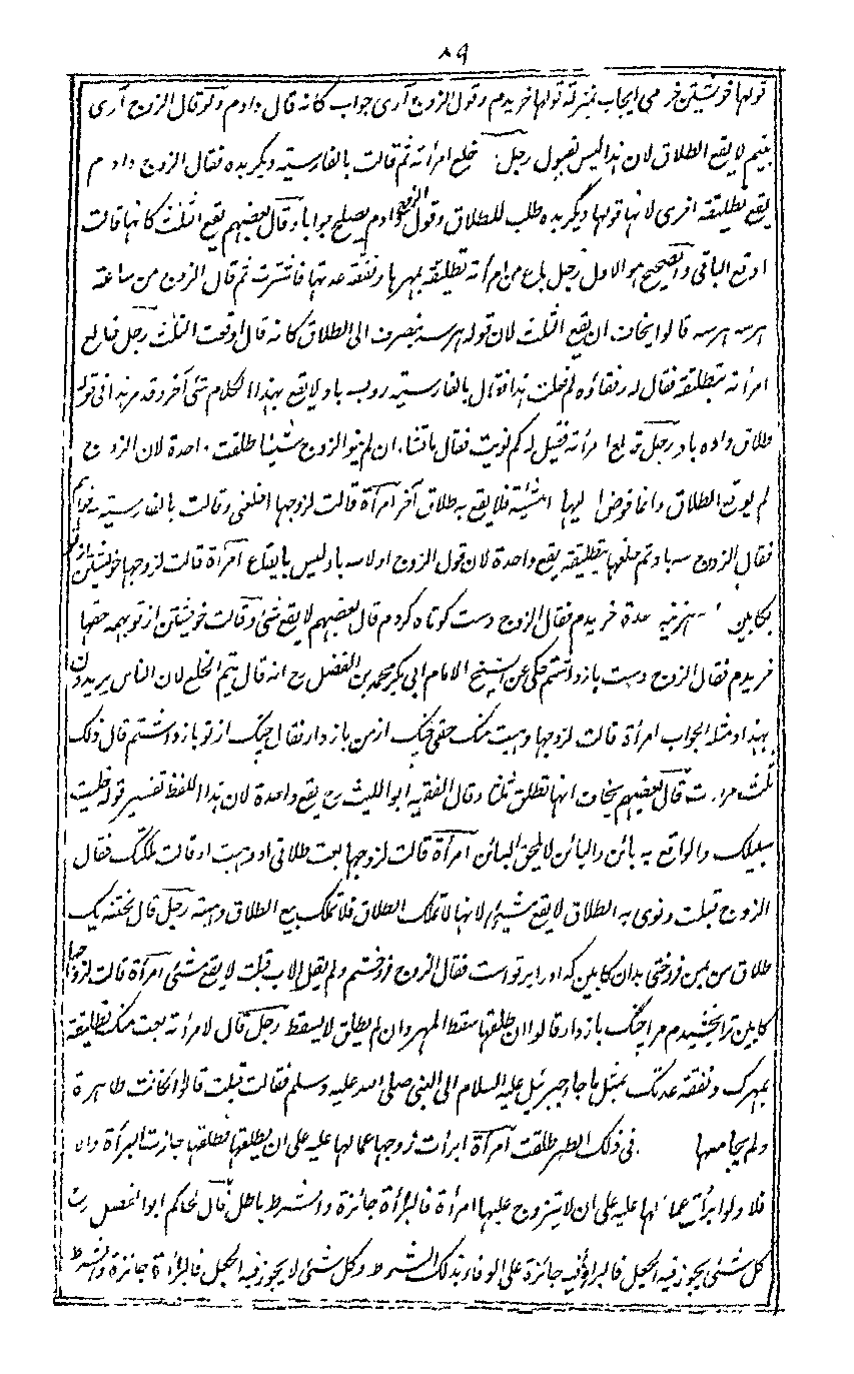 ٨٩
قولها خويشتن خر مى ايجاب بمنزلة قولها خريدم وقول الزوج آرى جواب كانه قال دادم ولو قال الزوج آرى
بينم لا يقع الطلاق لان هذا ليس بقبول رجل خلع امرأته ثم قالت بالفارسية ديگر بده فقال الزوج دادم
يقع تطليقة اخرى لانها قولها ديگر بده طلب للطلاق وقول الزوج دادم يصلح جوابا وقال بعضهم يقع الثلث كانها قالت
اوقع الباقى والصحيح هو الاول رجل باع من امرأته تطليقة بمهرها ونفقة عدتها فاشترت ثم قال الزوج من ساعته
هرسه هرسه قالوا يخاف ان يقع الثلث لان قوله هرسه ينصرف الى الطلاق كانه قال اوقعت الثلث رجل خالع
امرأته بتطليقة فقال له رفقاؤه لم فعلت هذا فقال بالفارسية رو سه باد لا يقع بهذا الكلام شئ آخر وقد مر هذا فى قوله
طلاق داده باد رجل خلع امرأته فقيل له كم نويت فقال ما تشاء ان لم ينو الزوج شيئا طلقت واحدة لان الزوج
لم يوقع الطلاق وانما فوض اليها المشية فلا يقع به طلاق آخر امرأة قالت لزوجها اخلعنى وقالت بالفارسية سه خواهم
فقال الزوج سه باد ثم خلعها بتطليقة يقع واحدة لان قول الزوج اولا سه باد ليس بايقاع امرأة قالت لزوجها خويشتن از تو
بكابين و هزينه عدة خريدم فقال الزوج دست كوتاه كردم قال بعضهم لا يقع شئ ولو قالت خويشتن از تو بهمه حقها
خريدم فقال الزوج دست باز داشتم حكى عن الشيخ الامام ابى بكر محمد بن الفضل رح انه قال يتم الخلع لان الناس يريدون
بهذا ومثله الجواب امرأة قالت لزوجها وهبت منك حقى چنگ از من باز دار فقال چنگ از تو باز داشتم قال ذلك
ثلث مرات قال بعضهم يخاف انها تطلق ثلثا وقال الفقيه ابو الليث رح يقع واحدة لان هذا اللفظ تفسير قوله خليت
سبيلك والواقع به بائن والبائن لا يلحق البائن امرأة قالت لزوجها بعت طلاقى او وهبت او قالت ملكتك فقال
الزوج قبلت ونوى به الطلاق لا يقع شئ لانها لا تملك الطلاق فلا تملك بيع الطلاق وهبته رجل قال لختنه يك
طلاق من بمن فروختى بدان كابين كه او را بر تو است فقال الزوج فروختم ولم يقل الاب قبلت لا يقع شئ امرأة قالت لزوجها
كابين ترا بخشيدم مرا چنگ باز دار قالوا ان طلقها سقط المهر وان لم يطلق لا يسقط رجل قال لامرأته بعت منك تطليقة
بمهرك ونفقة عدتك بمثل ما جاء جبرئيل عليه السلام الى النبى صلى الله عليه وسلم فقالت قبلت قالوا ان كانت طاهرة
ولم يجامعها فى ذلك الطهر طلقت امرأة ابرأت زوجها عما لها عليه على ان يطلقها فطلقها جازت البرأة والا
فلا ولو ابرأته عما لها عليه على ان لا يتزوج عليها امرأة فالبرأة جائزة والشرط باطل قال الحاكم ابو الفضل رح
كل شئ يجوز فيه الجعل فالبراءة فيه جائزة على الوفاء بذلك الشرط وكل شئ لا يجوز فيه الجعل فالبراءة جائزة والشرط